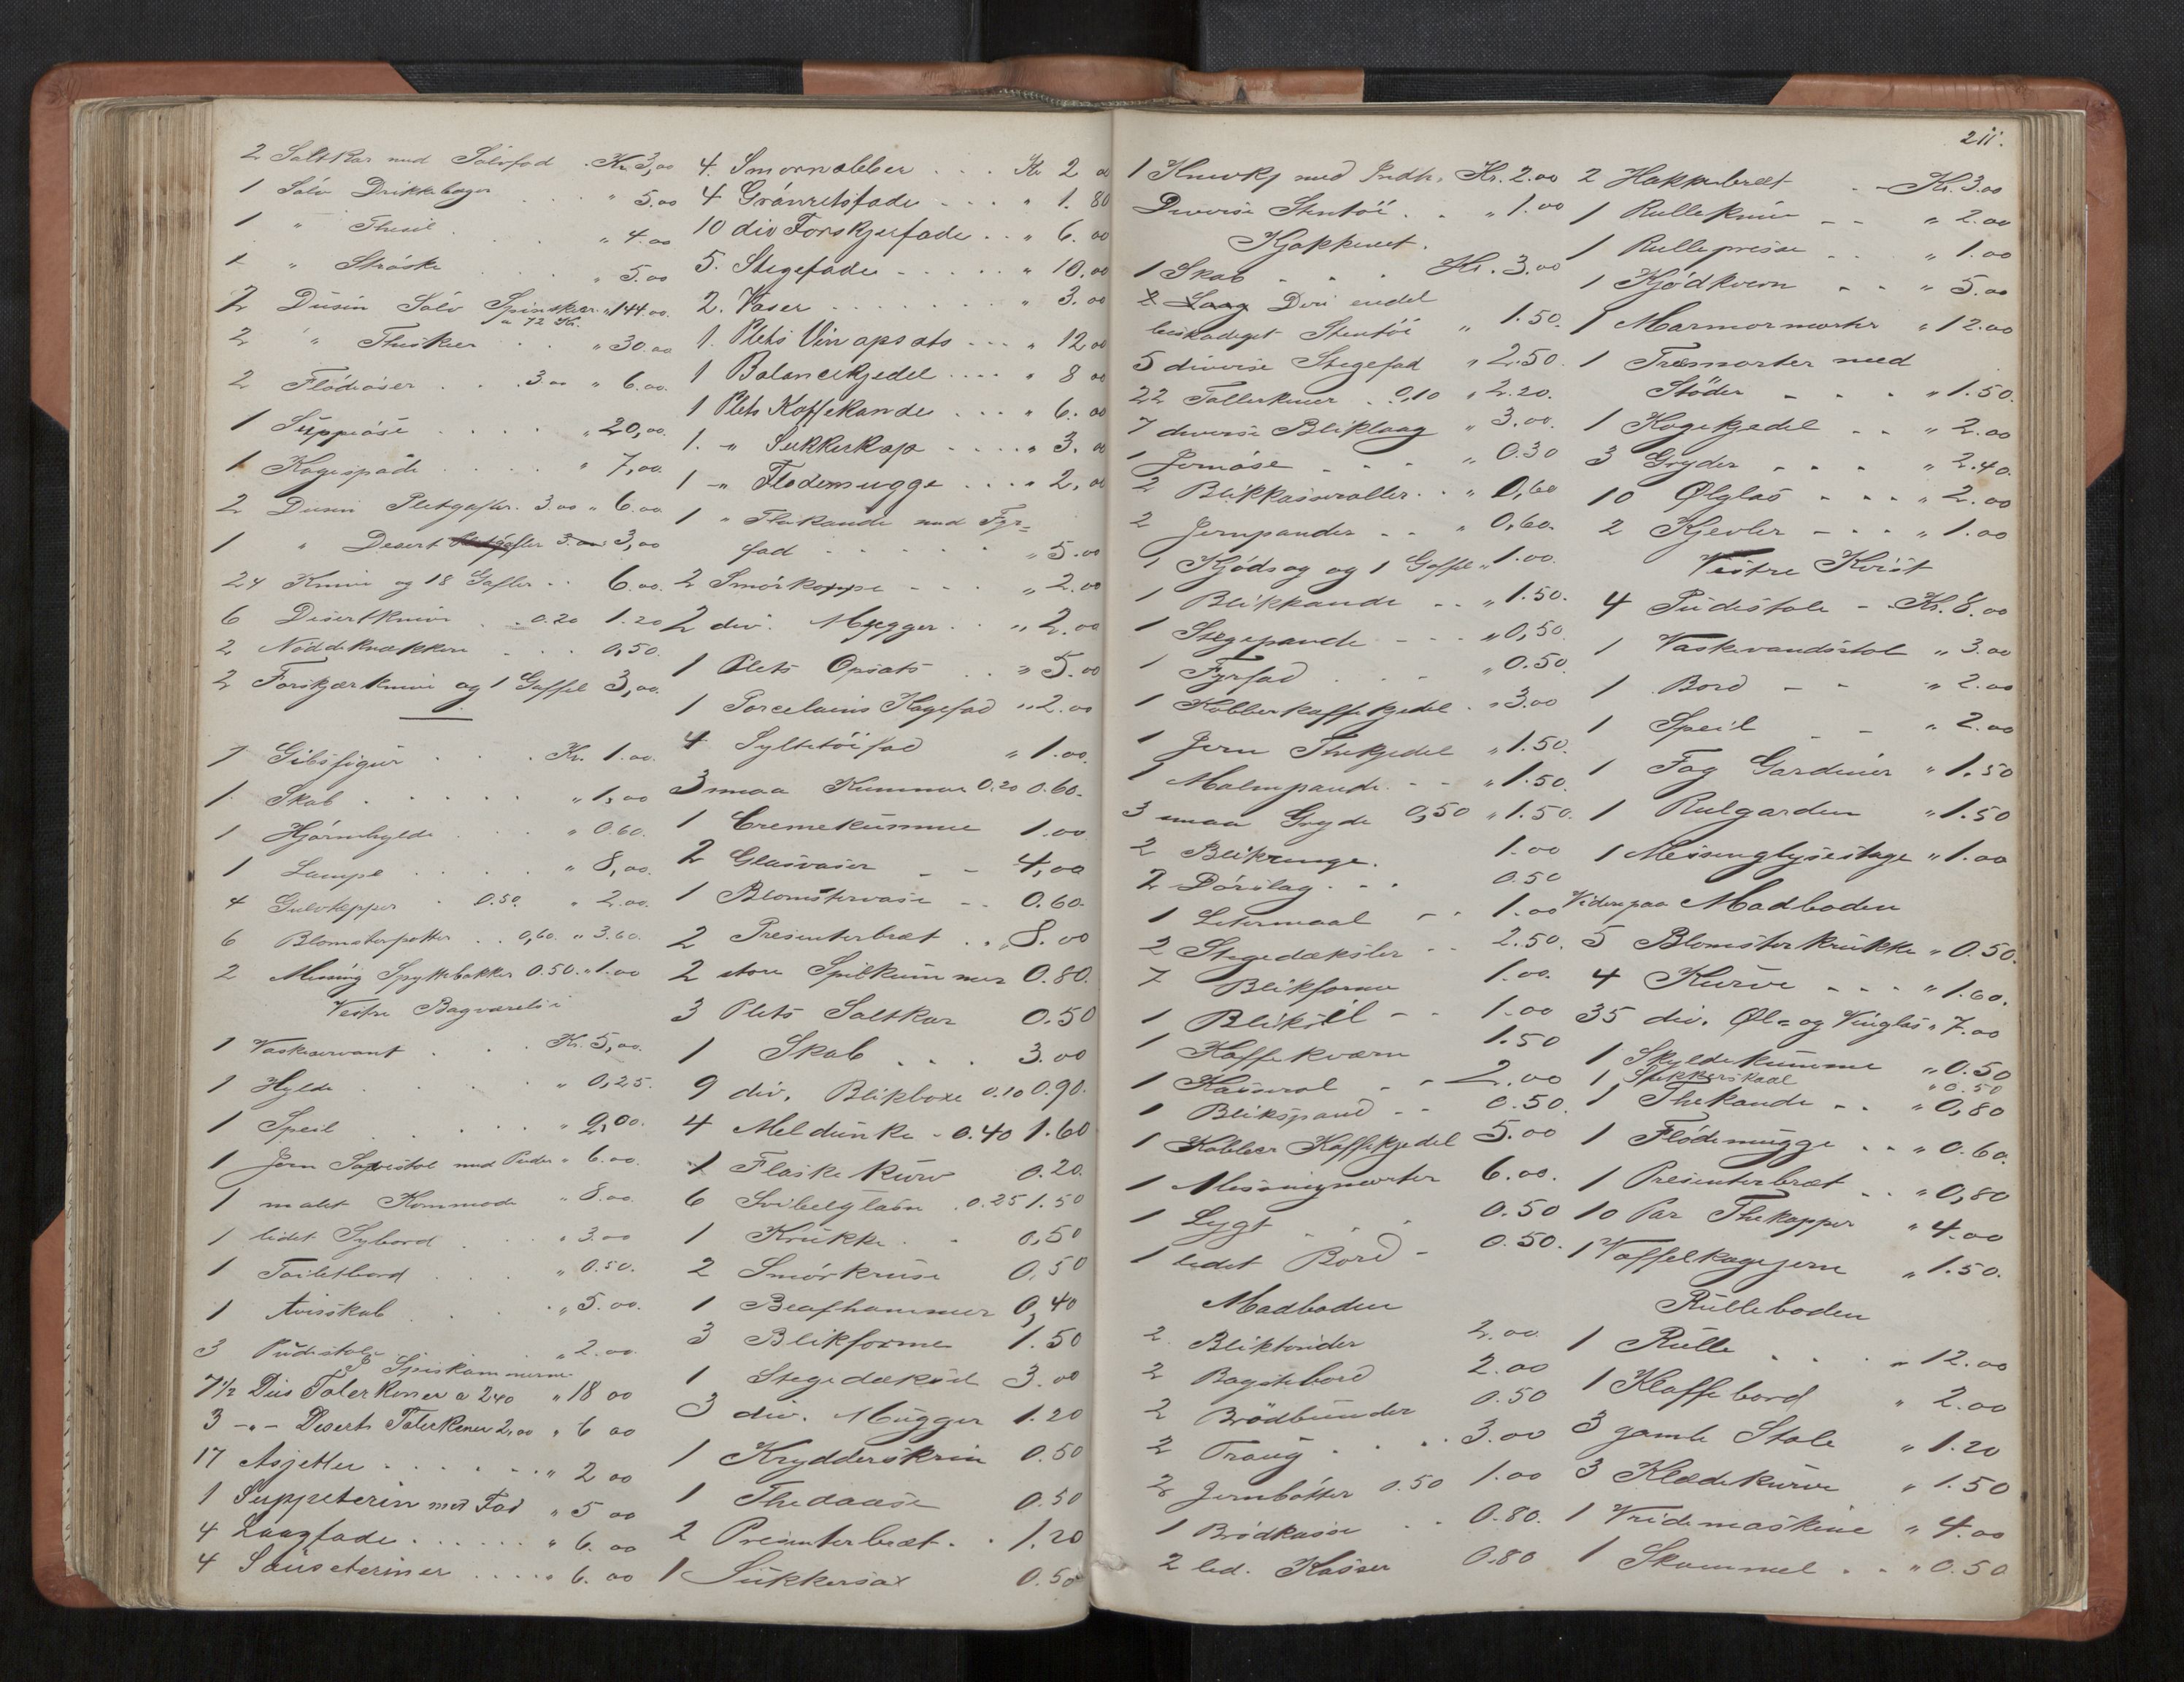 2 Saltkar med Sölvfad . Kr. 3,00
1 Sölv Drikkebæger " 5.00
1 " Thesil . . . " 4.00
1 " Ströske . . . " 5.00
2 Dusin Sölv Spiseskeer " 144.00.
a 72 Kr.
2 " Theskeer . . " 30.00
2 Flödeöser . . . 3 00 " 6.00.
1 Suppeöse . . . . " 20,00.
1 Kagespade . . . . " 7,00.
2 Dusin Pletgafler. 3.00 " 6.00.
1 " Desert gafler 3.00 3,00
24 Knive og 18 Gafler . . 6.00.
6 Desertknive . . 0.20 1.20
2 Nöddeknækkere . . . 0,50.
2 Forskjærknive og 1 Gaffel 3,00.
1 Gibsfigur . . . Kr. 1.00.
1. Skab . . . . . " 1,00
1 Hjörnehylde . . . " 0.60.
1 Lampe . . . . " 8,00.
4 Gulvtepper . 0.50. " 2.00.
6 Blomsterpotter . . 0,60. " 3.60.
2 Messing Spyttebakker 0.50. " 1.00
Vestre Bagværelse
1 Vaskeservant . . . Kr. 5,00.
1 Hylde . . . . " 0,25.
1 Speil . . . . . " 2,00.
1 Jern Sovestol med Puder " 6.00.
1 malet Kommode " 8.00.
1 lidet Sybord . . " 3.00
1 Toiletbord . . . " 0.50.
1 Avisskab . . . . " 5.00.
3 Pudestole . . . " 2.00.
I Spiskammerne
7 1/2 Dus Talerkener a 240 " 18 00
3 -"- Desert Talerkener 2,00 " 6 00
17 Asjetter . . . . . . " 2 00
1 Suppeterin med Fad " 5 00
4 Laagfade . . . . . . " 6. 00
4 Sauseteriner . . . . " 6. 00
4. Smørnebber . . . Kr 2 00
4 Grönretsfade - - - " 1. 80
10 div Forskjerfade . . " 6. 00
5. Stegefade - - . . . " 10.00
2. Vaser . . . . . . . " 3. 00
1. Plets Vinopsats - - - " 12 00
1 Balancekjedel . . . . " 8 00
1 Plets Kaffekande . . . " 6. 00
1. -" Sukkerkop - - . . " 3. 00
1 -" Flødemugge . . . " 2. 00
1 " Thekande med Fyr=
fad - - - - - - " 5.00
2 Smörkoppe - - - " 2.00
2 div. Mugger . . " 2.00
1 Plets Opsats . . " 5.00
1 Porcelains Kagefad " 2.00
4 Syltetöifad " 1.00.
3 smaa Kummer 0.20 0.60.
1 Cremekumme 1.00
2 Glasvaser - - 4,00
1 Blomstervase - - 0.60.
2 Presenterbræt . . " 8.00
2 store Spilkummer 0.80.
3 Plets Saltkar 0.50
1 Skab . . . 3.00
9 div. Blikboxe 0.10 0.90.
4 Meldunke - 0.40 1.60
1 Flaskekurv 0.20.
6 Svibelglasse . 0.25 1.50
1 Krukke . - 0,50
2 Smörkruse 0,50
1 Beafhammer 0,40
3 Blikforme 1.50
1 Stegedæksel 3.00
3 div. Mugger 1.20
1 Krydderskrin 0.50
1 Thedaase 0.50
2 Presenterbræt . . 1.20
1 Sukkersax 0.50
211.
1 med Indh. Kr. 2.00
Diverse Stentöi . . " 1.00
Kjøkkenet.
1 Skab - . . Kr. 3.00
2 Laag Deri endel
beskadiget Stentöi " 1.50.
5 diverse Stegefad " 2.50.
22 Tallerkener . 0,10 " 2.20.
7 diverse Bliklaag " 3.00.
1 Jernöse - - - " 0.30
2 Blikkasseroller . . " 0,60
2 Jernpander . . " 0,60.
1 Kjödsag og 1 Gaffel " 1.00.
1 Blikkande . . " 1.50.
1 Stegepande - - - " 0,50.
1 Fyrfad . . - " 0.50
1 Kobberkaffekjedel . " 3.00
1 Jern Thekjedel " 1.50.
1 Malmpande. - - " 1.50.
3 smaa Gryde 0,50 " 1.50.
2 Blikringe. 1.00
2 Dörslag . - . 0.50
1 Litermaal - . 1.00
2 Stegedæksler - . 2.50.
7 Blikforme 1.00.
1 Bliksil - - 1.00
1 Kaffekværn 1.50
1 Kasserol - - 2.00
1 Blikspand - - 0.50.
1 Kobber Kaffekjedel 5.00
1 Messingmorter 6.00.
1 Lygt . . . 0.50
1 lidet Bord - 0.50.
Madboden
2 Bliktrider 2.00.
2 Bagstebord 2.00
2 Brödbunder 0.50
2 Traug . . . . 3.00
2 Jernbötter 0.50 1.00
1 Brödkasse . . 0.80.
2 led. Kasser 0.80
2 Hakkebræt . - Kr. 3.00
1 Rullekniv - - " 2.00
1 Rullepresse . . " 1.00
1 Kjödkvern - - " 5.00
1 Marmormorter " 12.00
1 Træmorter med
Stöder - - . " 1.50.
1 Kogekjedel . . " 2.00
3 Gryder - - - " 2.40.
10 Ølglas - - - " 2.00
2 Kjevler - - - " 1.00
Vestre Kvist
4 Pudestole - . Kr. 8.00
1 Vaskevandsstol " 3.00
1 Bord - - " 2.00
1 Speil - - " 2.00
1 Fag Gardiner " 1.50
1 Rulgardin " 1.50
1 Messinglysestage " 1.00
Videre paa Madboden
5 Blomsterkrukke " 0.50.
4 Kurve - - - " 1.60.
35 div. Øl= og Vinglas " 7.00
1 Skyldekumme " 0.50
1 Sukkerskaal " 0.50
1 Thekande - . " 0,80
1 Flödemugge . . " 0.60.
1 Presenterbræt . . " 0,80
10 Par Thekopper " 4.00
1 Vaffelkagejern " 1.50.
Rulleboden
1 Rulle . . . " 12.00
1 Klaffebord " 2.00
3 gamle Stole " 1.20
3 Klædekurve " 1.50
1 Vridemaskine " 4.00
1 Skammel . . " 0.50